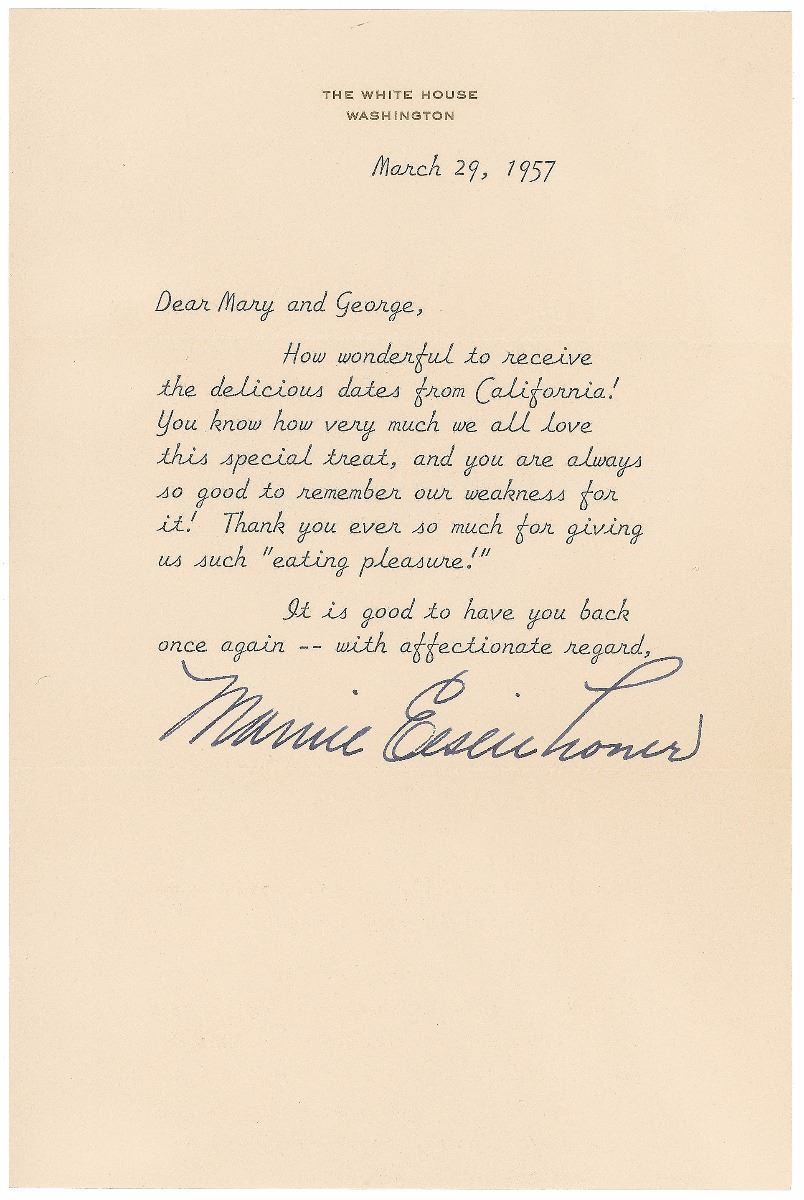 THE WHITE HOUSE
WASHINGTON
March 29, 1957
Dear Mary and George,
How wonderful to receive
the delicious dates from California!
You know how very much we all love
this special treat, and you are always
so good to remember our weakness for
it! Thank you ever so much for giving
us such "eating pleasure!"
It is good to have you back
once again -- with affectionate regard,
Mamie Eisenhower